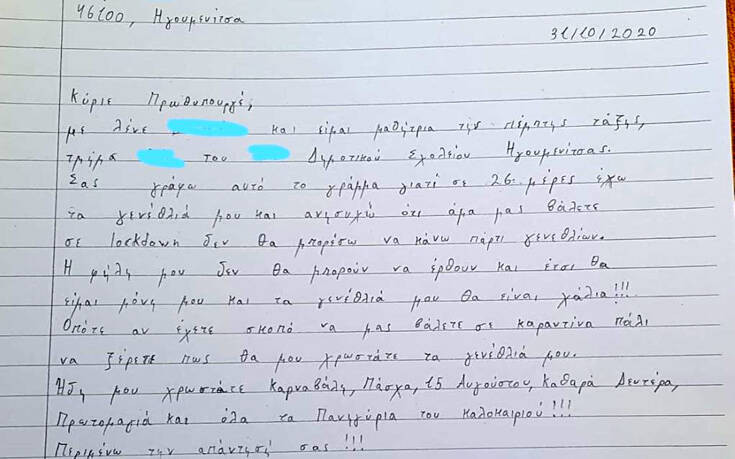 46100, Ηγουμενίτσα
31/10/2020
Κύριε Πρωθυπουργέ,
με λένε και είμαι μαθήτρια της πέμπτης τάξης,
τμήμα του Δημοτικού Σχολείου Ηγουμενίτσας.
Σας γράφω αυτό το γράμμα γιατί σε 26 μέρες έχω
τα γενέθλιά μου και ανησυχώ ότι άμα μας βάλετε
σε lockdown δεν θα μπορέσω να κάνω πάρτι γενεθλίων.
Η φίλη μου δεν θα μπορούν να έρθουν και έτσι θα
είμαι μόνη μου και τα γενέθλιά μου θα είναι χάλια!!!
Οπότε αν έχετε σκοπό να μας βάλετε σε καραντίνα πάλι
να ξέρετε πως θα μου χρωστάτε τα γενέθλιά μου.
Ήδη μου χρωστάτε Καρναβάλη, Πάσχα, 15 Αυγούστου, Καθαρά Δευτέρα,
Πρωτομαγιά και όλα τα Πανηγύρια του καλοκαιριού!!!
Περιμένω την απάντησή σας!!!